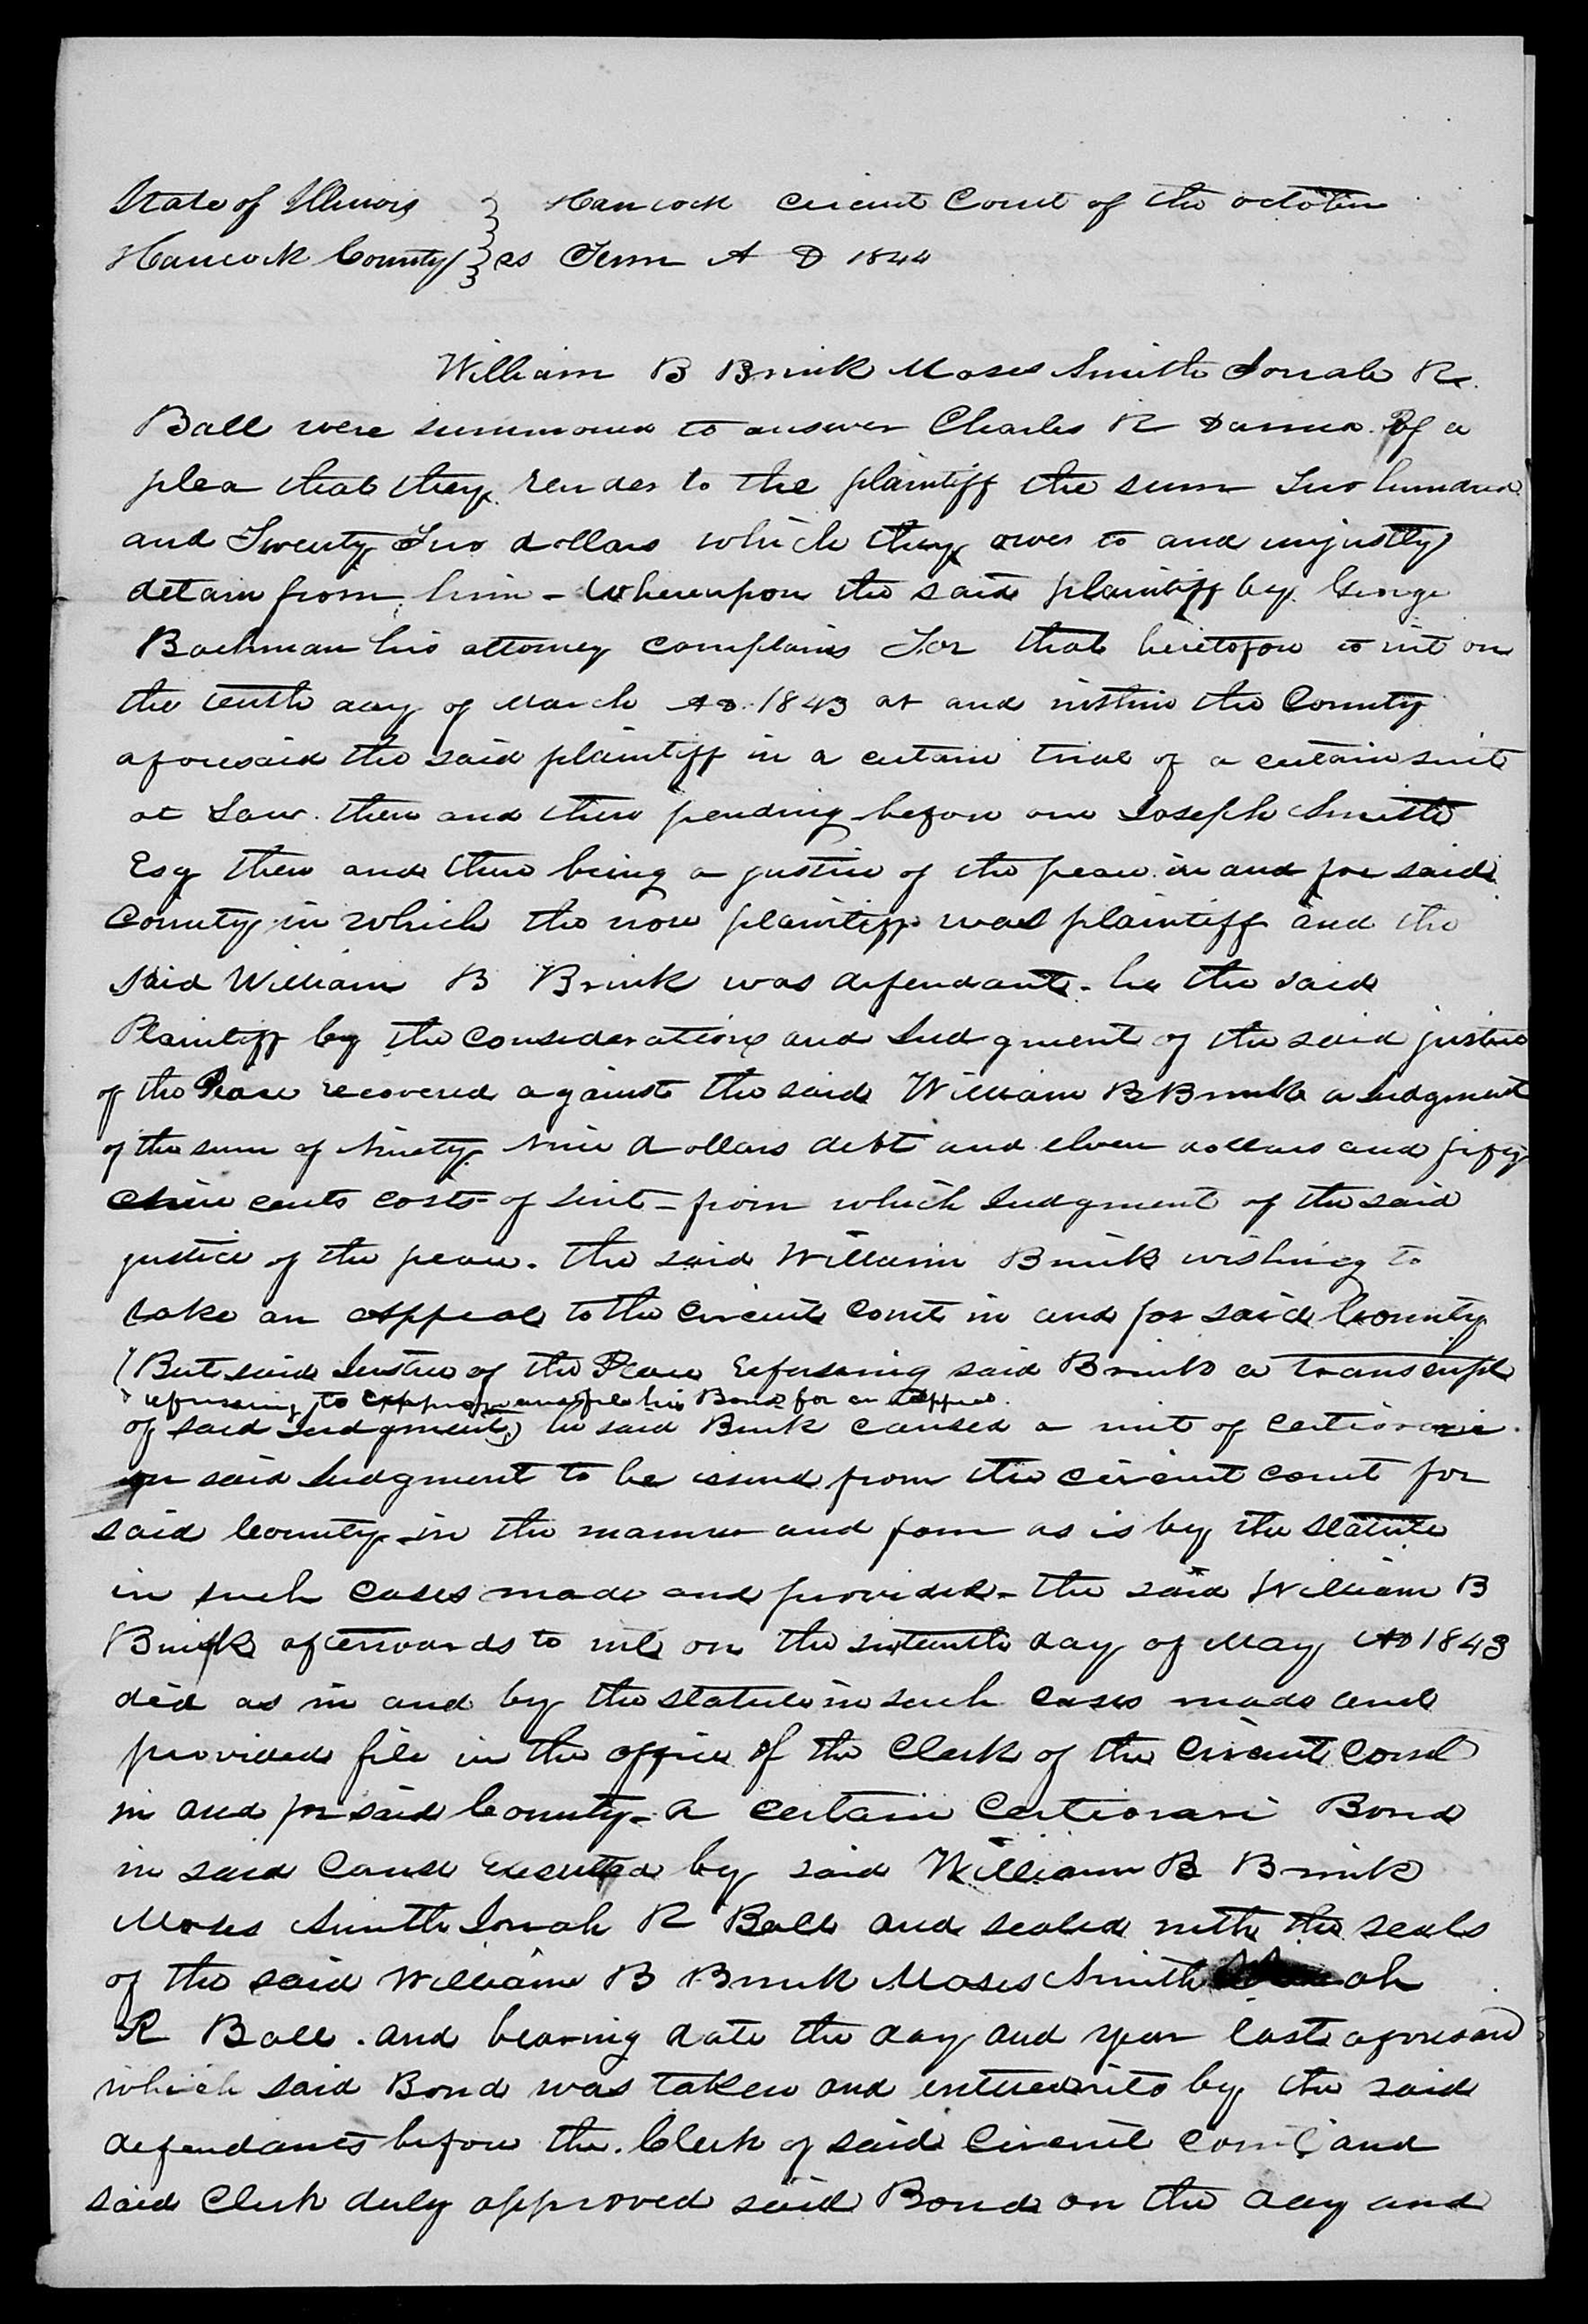 State of Illinois } Hancock circuit Court of the october
Hancock County } ss Term A D 1844
William B Brink Moses Smith Jonah R.
Ball were summoned to answer Charles R Dana. Of a
plea that they render to the plaintiff the sum Two hundred
and Twenty Two dollars which they owes to and unjustly
detain from him - Whereupon the said plaintiff by George
Bachman his attorney complains For that heretofore to wit on
the tenth day of March AD. 1843 at and within the County
aforesaid the said plaintiff in a certain trial of a certain suit
at Law. then and there pending before one Joseph Smith
Esq then and there being a justice of the peace in and for said
County in which the now plaintiff was plaintiff and the
said William B Brink was defendant - he the said
Plaintiff by the consideration and Judgment of the said justice
of the Peace recovered against the said William B Brink a Judgment
of the sum of Ninety Nine dollars debt and eleven dollars and fifty
cents costs of suit - from which Judgment of the said
justice of the peace. the said William Brink wishing to
take an appeal to the circuit court in and for said County
(But said Justice of the Peace Refusing said Brink a transcript
& refusing to approve and file his Bond for an appeal.
of said Judgment) he said Brink caused a writ of certiorari.
on said Judgment to be issued from the circuit court for
said County in the manner and form as is by the statute
in such cases made and provided - the said William B
Brink afterwards to wit on the sixteenth day of May AD 1843
did as in and by the statute in such cases made and
provided file in the office of the Clerk of the circuit Court
in and for said County - a certain Certiorari Bond
in said Cause Executed by said William B Brink
Moses Smith Jonah R Ball and sealed with the seals
of the said William B Brink Moses Smith ah
R Ball. and bearing date the day and year last aforesaid
which said Bond was taken and entered into by the said
defendants before the. Clerk of said Circuit Court and
said Clerk duly approved said Bond on the day and